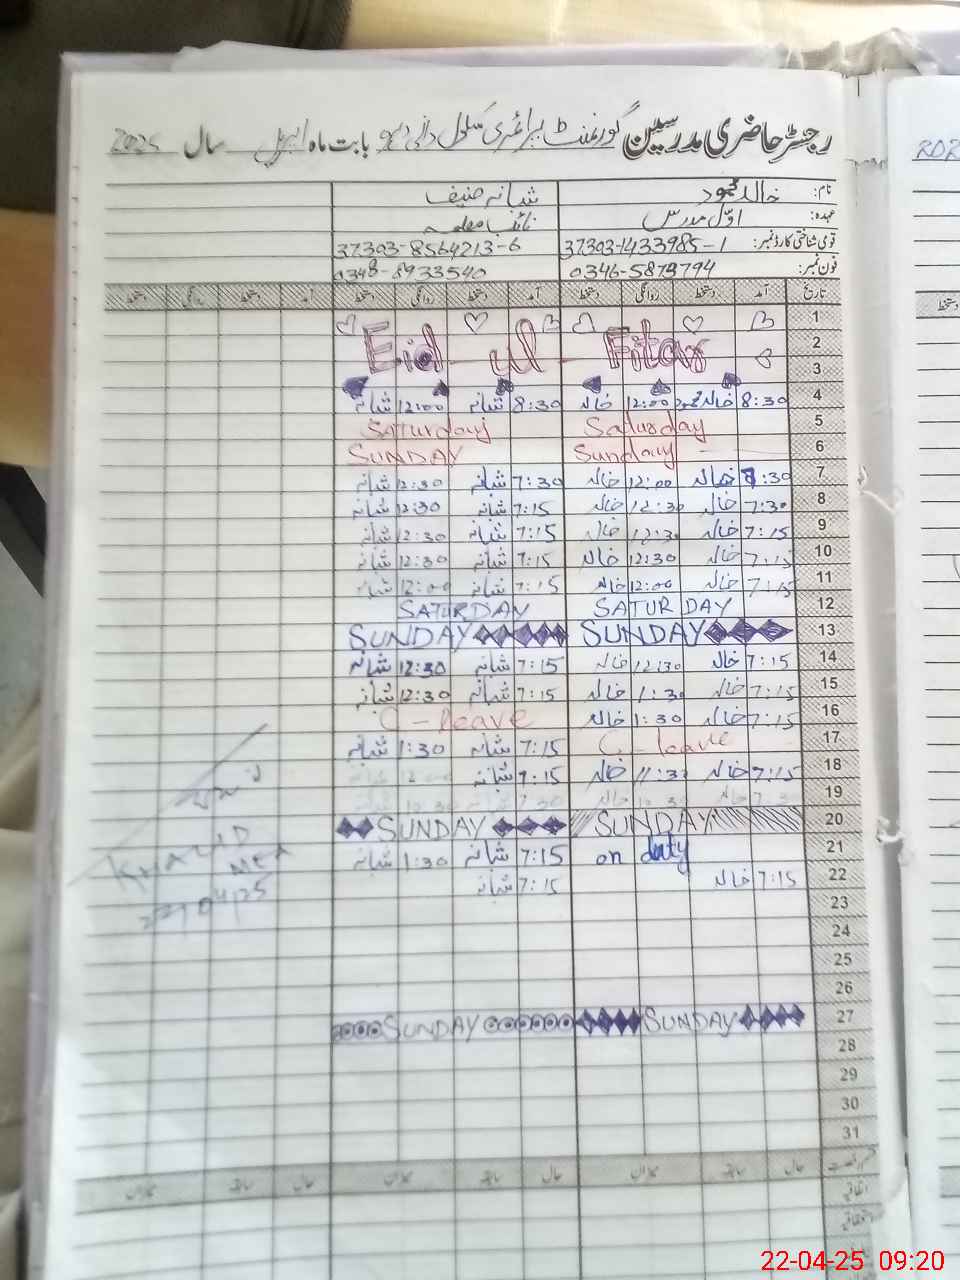 رجسٹر حاضری مدرسین گورنمنٹ پرائمری سکول بابت ماہ اپریل سال 2025
نام: خالد محمود شبانہ حنیف
عہدہ: اوّل مدرس نائب معلمہ
قومی شناختی کارڈ نمبر: 37303-1433985-1 37303-8564213-6
فون نمبر: 0346-5879794 0348-8933540
تاریخ آمد دستخط روانگی دستخط آمد دستخط روانگی دستخط آمد دستخط روانگی دستخط
1
2 Eid ul - Fitar
3
4 8:30 خالد محمود 12:00 خالد 8:30 شبانہ 12:00 شبانہ
5 Saturday Saturday
6 Sunday SUNDAY
7 7:30 خالد 12:00 خالد 7:30 شبانہ 12:30 شبانہ
8 7:30 خالد 12:30 خالد 7:15 شبانہ 12:30 شبانہ
9 7:15 خالد 12:30 خالد 7:15 شبانہ 12:30 شبانہ
10 7:15 خالد 12:30 خالد 7:15 شبانہ 12:30 شبانہ
11 7:15 خالد 12:00 خالد 7:15 شبانہ 12:00 شبانہ
12 SATURDAY SATURDAY
13 SUNDAY SUNDAY
14 7:15 خالد 12:30 خالد 7:15 شبانہ 12:30 شبانہ
15 7:15 خالد 1:30 خالد 7:15 شبانہ 12:30 شبانہ
16 7:15 خالد 1:30 خالد C - Leave
17 C - leave 7:15 شبانہ 1:30 شبانہ
18 7:15 خالد 11:30 خالد 7:15 شبانہ 12:00 شبانہ
19 7:30 خالد 10:30 خالد 7:30 شبانہ 10:30 شبانہ
20 SUNDAY SUNDAY
21 on duty 7:15 شبانہ 1:30 شبانہ
22 7:15 خالد 7:15 شبانہ
23
24
25
26
27 SUNDAY SUNDAY
28
29
30
31
حال سابقہ میزان حال سابقہ میزان حال سابقہ میزان
اتفاقیہ
KHALID
MEA
22/04/25
22-04-25 09:20